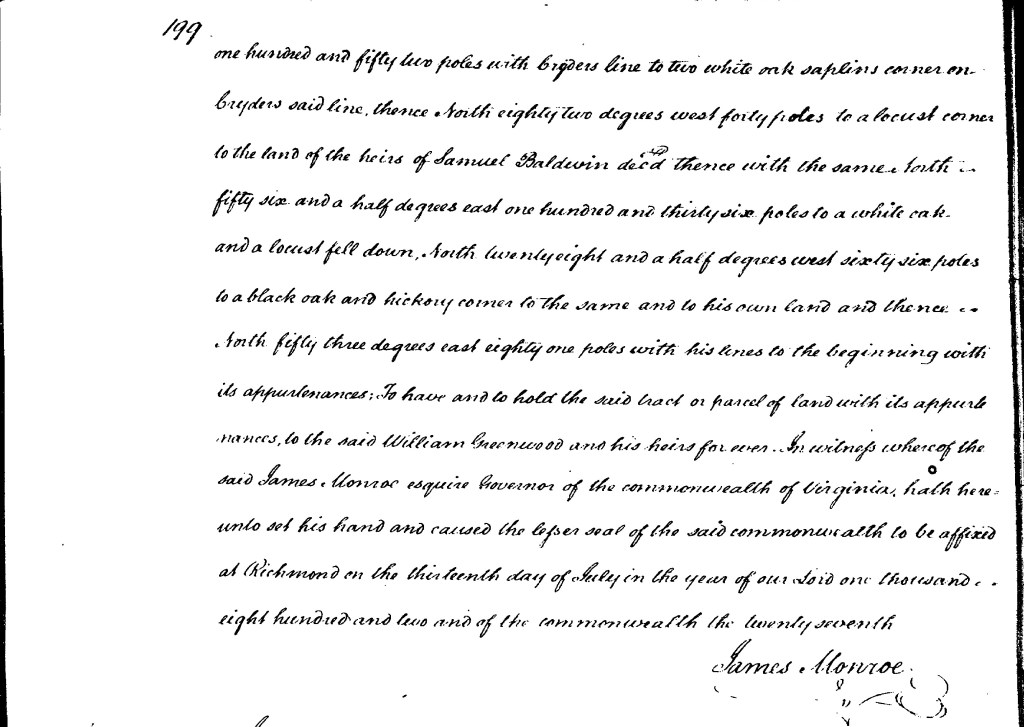 199
one hundred and fifty two poles with Cryders line to two white oak saplins corner on
Cryders said line, thence North eighty two degrees west forty poles to a locust corner
to the land of the heirs of Samuel Baldwin decd thence with the same North
fifty six and a half degrees east one hundred and thirty six poles to a white oak
and a locust fell down, North twenty eight and a half degrees west sixty six poles
to a black oak and hickory corner to the same and to his own land and thence
North fifty three degrees east eighty one poles with his lines to the beginning with
its appurtenances; To have and to hold the said tract or parcel of land with its appurte
nances, to the said William Greenwood and his heirs for ever. In witness whereof the
said James Monroe esquire Governor of the commonwealth of Virginia, hath here=
unto set his hand and caused the lesser seal of the said commonwealth to be affixed
at Richmond on the thirteenth day of July in the year of our Lord one thousand
eight hundred and two and of the commonwealth the twenty seventh
James Monroe